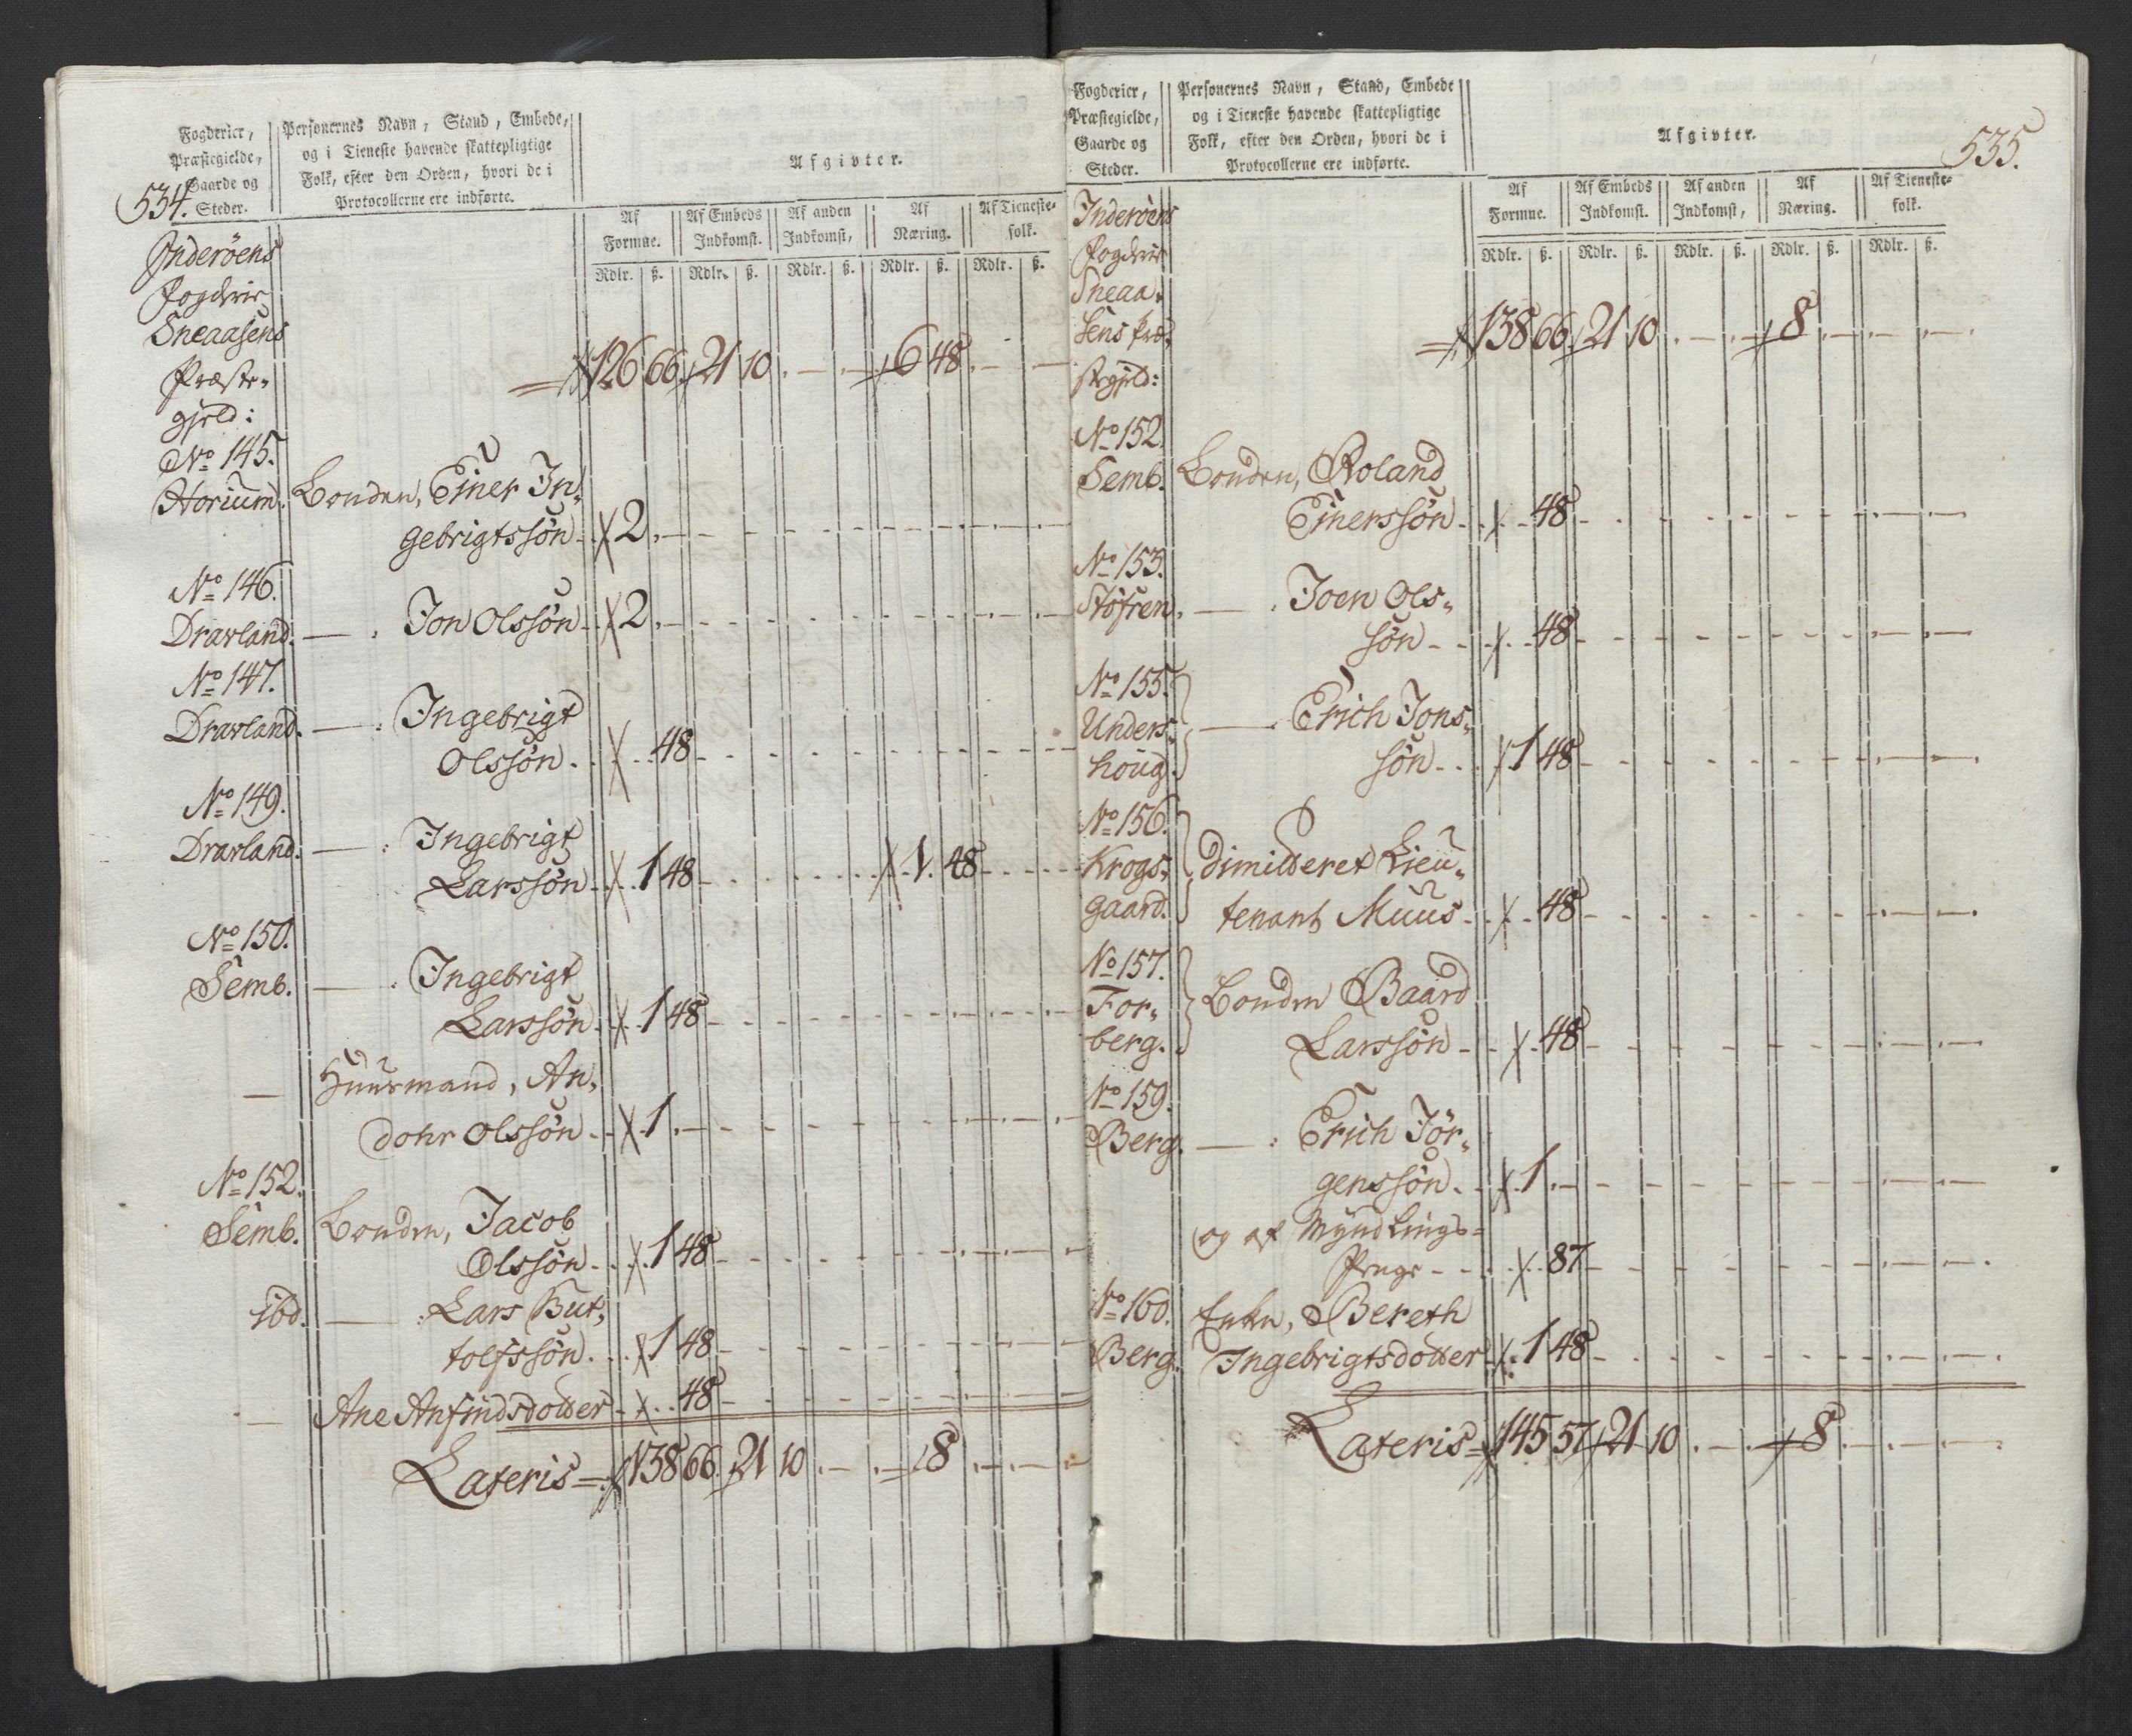 534.
Fogderier,
Præstegielde,
Gaarde og
Steder.
Personernes Navn, Stand, Embede,
og i Tieneste havende skattepligtige
Folk, efter den Orden, hvori de i
Protocollerne ere indførte.
Afgivter.
Af Formue. Af Embeds Indkomst. Af anden Indkomst, Af Næring. Af Tieneste-folk.
Rdlr. ß. Rdlr. ß. Rdlr. ß. Rdlr. ß. Rdlr. ß.
Inderöens
Fogderie
Sneaasens
Præste-
gjeld:
126 66. 21 10 . — . — 6 48
No 145.
Horium. Bonden, Einer In-
gebrigtssön 2
No 146.
Dravland. — : Jon Olssön 2
No 147.
Dravland. — : Ingebrigt
Olssön 48
No 149.
Dravland. — : Ingebrigt
Larssön 1 48 1 48
No 150.
Semb. — : Ingebrigt
Larssön 1 48
— Huusmand, An-
dohr Olssön 1
No 152.
Semb. Bonden, Jacob
Olssön 1 48
ibd. — : Lars But-
tolfssön 1 48
— Ane Anfindsdotter 48
Lateris = 138 66. 21 10 . — . — 8
535.
Fogderier,
Præstegielde,
Gaarde og
Steder.
Personernes Navn, Stand, Embede
og i Tieneste havende skattepligtige
Folk, efter den Orden, hvori de i
Protocollerne ere indførte.
Afgivter.
Af Formue. Af Embeds Indkomst. Af anden Indkomst, Af Næring. Af Tieneste-folk.
Rdlr. ß. Rdlr. ß. Rdlr. ß. Rdlr. ß. Rdlr. ß.
Inderöens
Fogderie
Sneaa-
sens Præ-
stegjeld:
138 66. 21 10 . — . — 8
No 152.
Semb. Bonden, Roland
Einerssön 48
No 153.
Stöfren. — : Joen Ols-
sön 48
No 155.
Unders-
houg. — : Erich Jons-
sön 1 48
No 156.
Krogs-
gaard. dimitteret Lieu-
tenant Muus 48
No 157.
For-
berg. Bonden Baard
Larssön 48
No 159.
Berg. — : Erich Jör-
genssön 1
og af Myndlings-
Penge 87
No 160. Enken, Bereth
Berg. Ingebrigtsdotter 1 48
Lateris = 145 57 21 10 . — . — 8